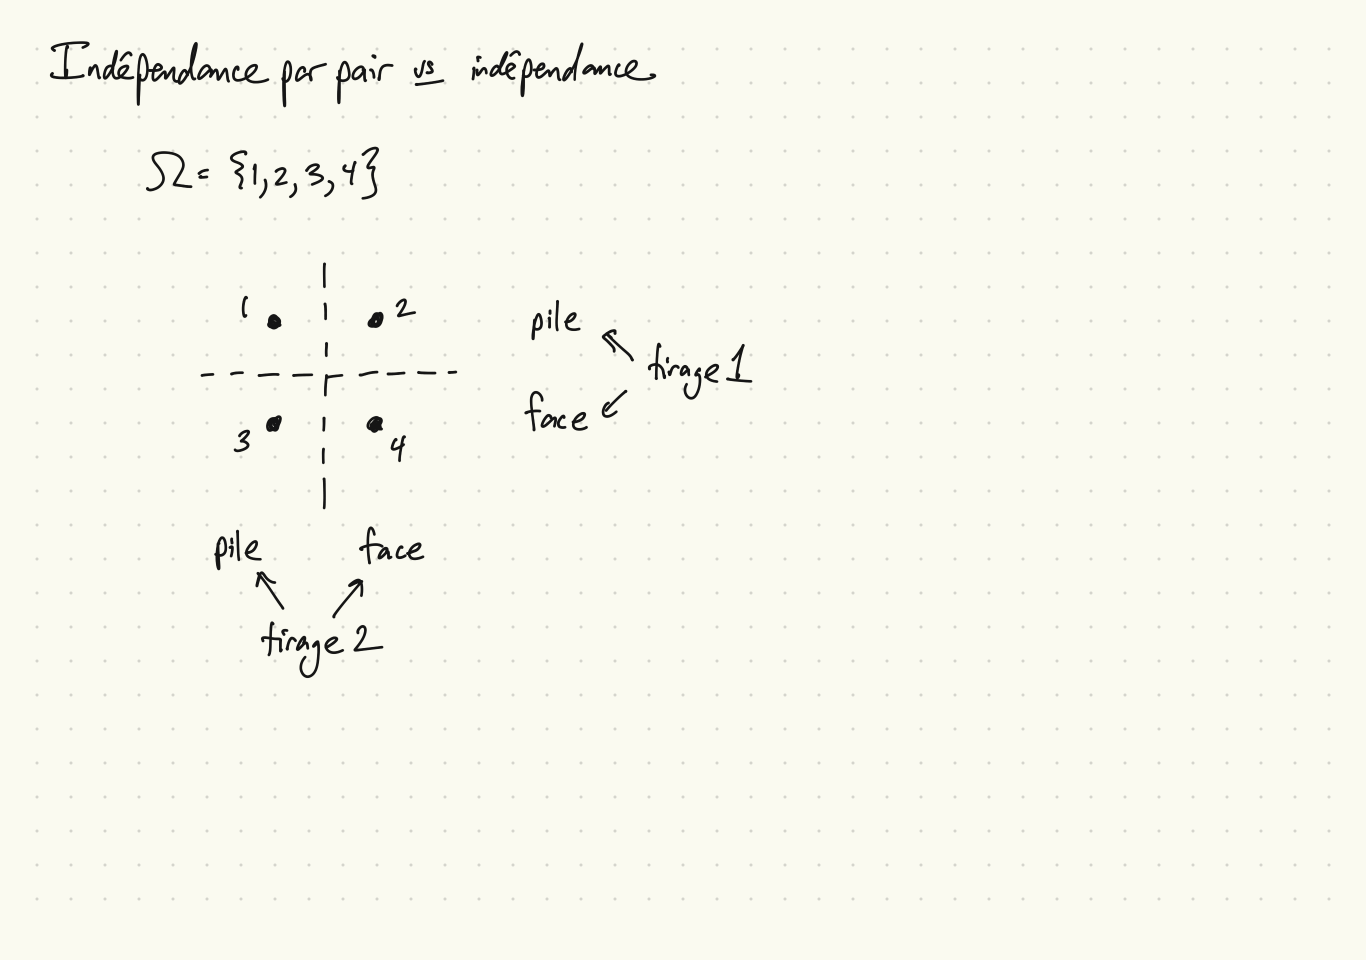 Indépendance par pair vs indépendance
Ω = {1, 2, 3, 4}
1 2
3 4
pile
face
tirage 1
pile face
tirage 2